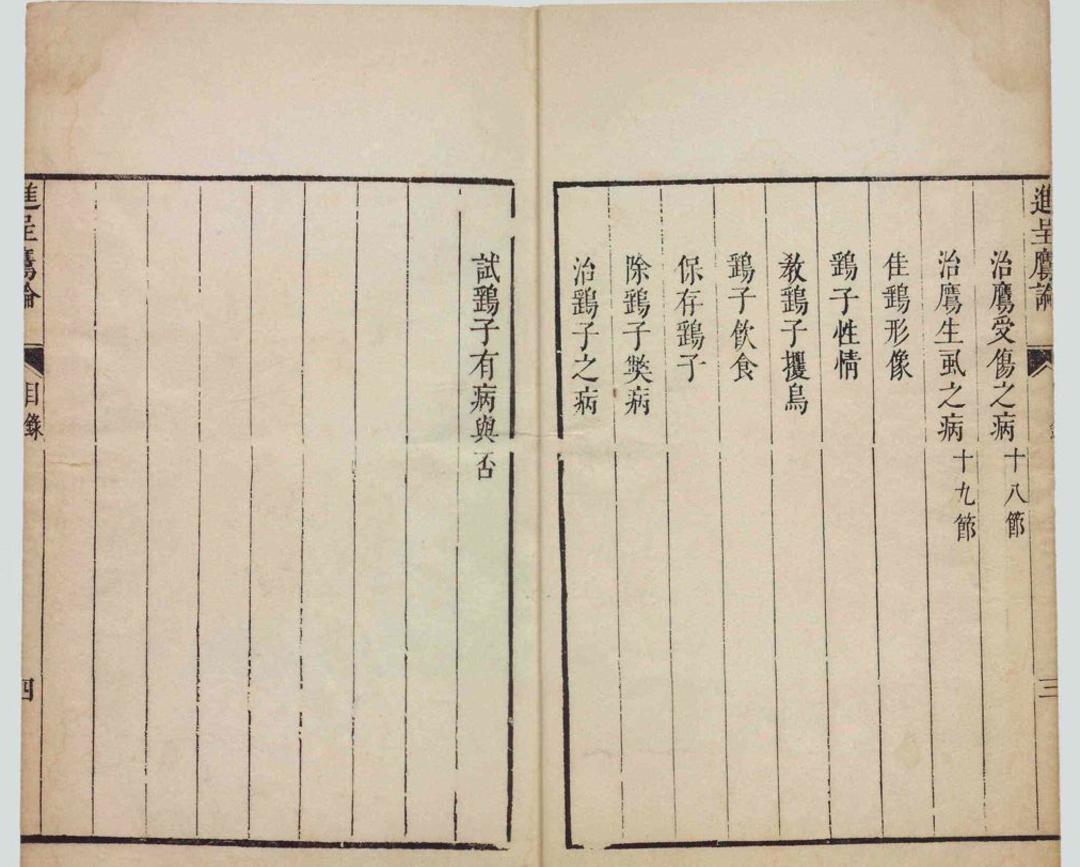 進呈鷹論
三
治鷹受傷之病 十八節
治鷹生虱之病 十九節
佳鷂形像
鷂子性情
教鷂子攫鳥
鷂子飲食
保存鷂子
除鷂子獘病
治鷂子之病
試鷂子有病與否
進呈鷹論
目錄
四